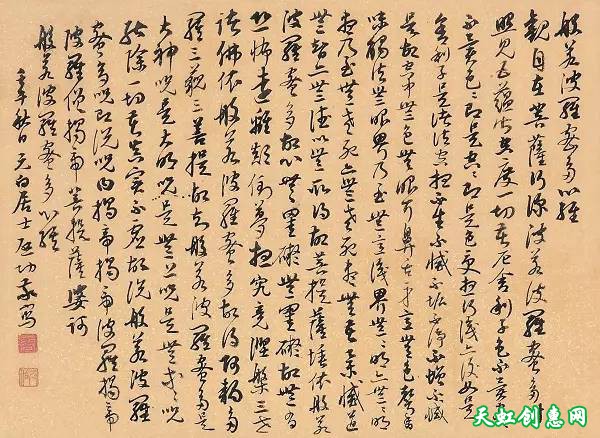 般若波羅蜜多心經
觀自在菩薩行深波若波羅蜜多時
照見五蘊皆空度一切苦厄舍利子色不異空
不異色色即是空空即是色受想行識亦復如是
舍利子是諸法空相不生不滅不垢不淨不增不減
是故空中無色無眼耳鼻舌身意無色聲香
味觸法無眼界乃至無意識界無無明亦無無明
盡乃至無老死亦無老死盡無苦集滅道
無智亦無得以無所得故菩提薩埵依般若
波羅蜜多故心無罣礙無罣礙故無有
恐怖遠離顛倒夢想究竟涅槃三世
諸佛依般若波羅蜜多故得阿耨多
羅三藐三菩提故知般若波羅蜜多是
大神咒是大明咒是無上咒是無等等咒
能除一切苦真實不虛故說般若波羅
蜜多咒即說咒曰揭帝揭帝波羅揭帝
波羅僧揭帝菩提薩婆訶
般若波羅蜜多心經
秋日元白居士啟功敬寫
天虹创意网